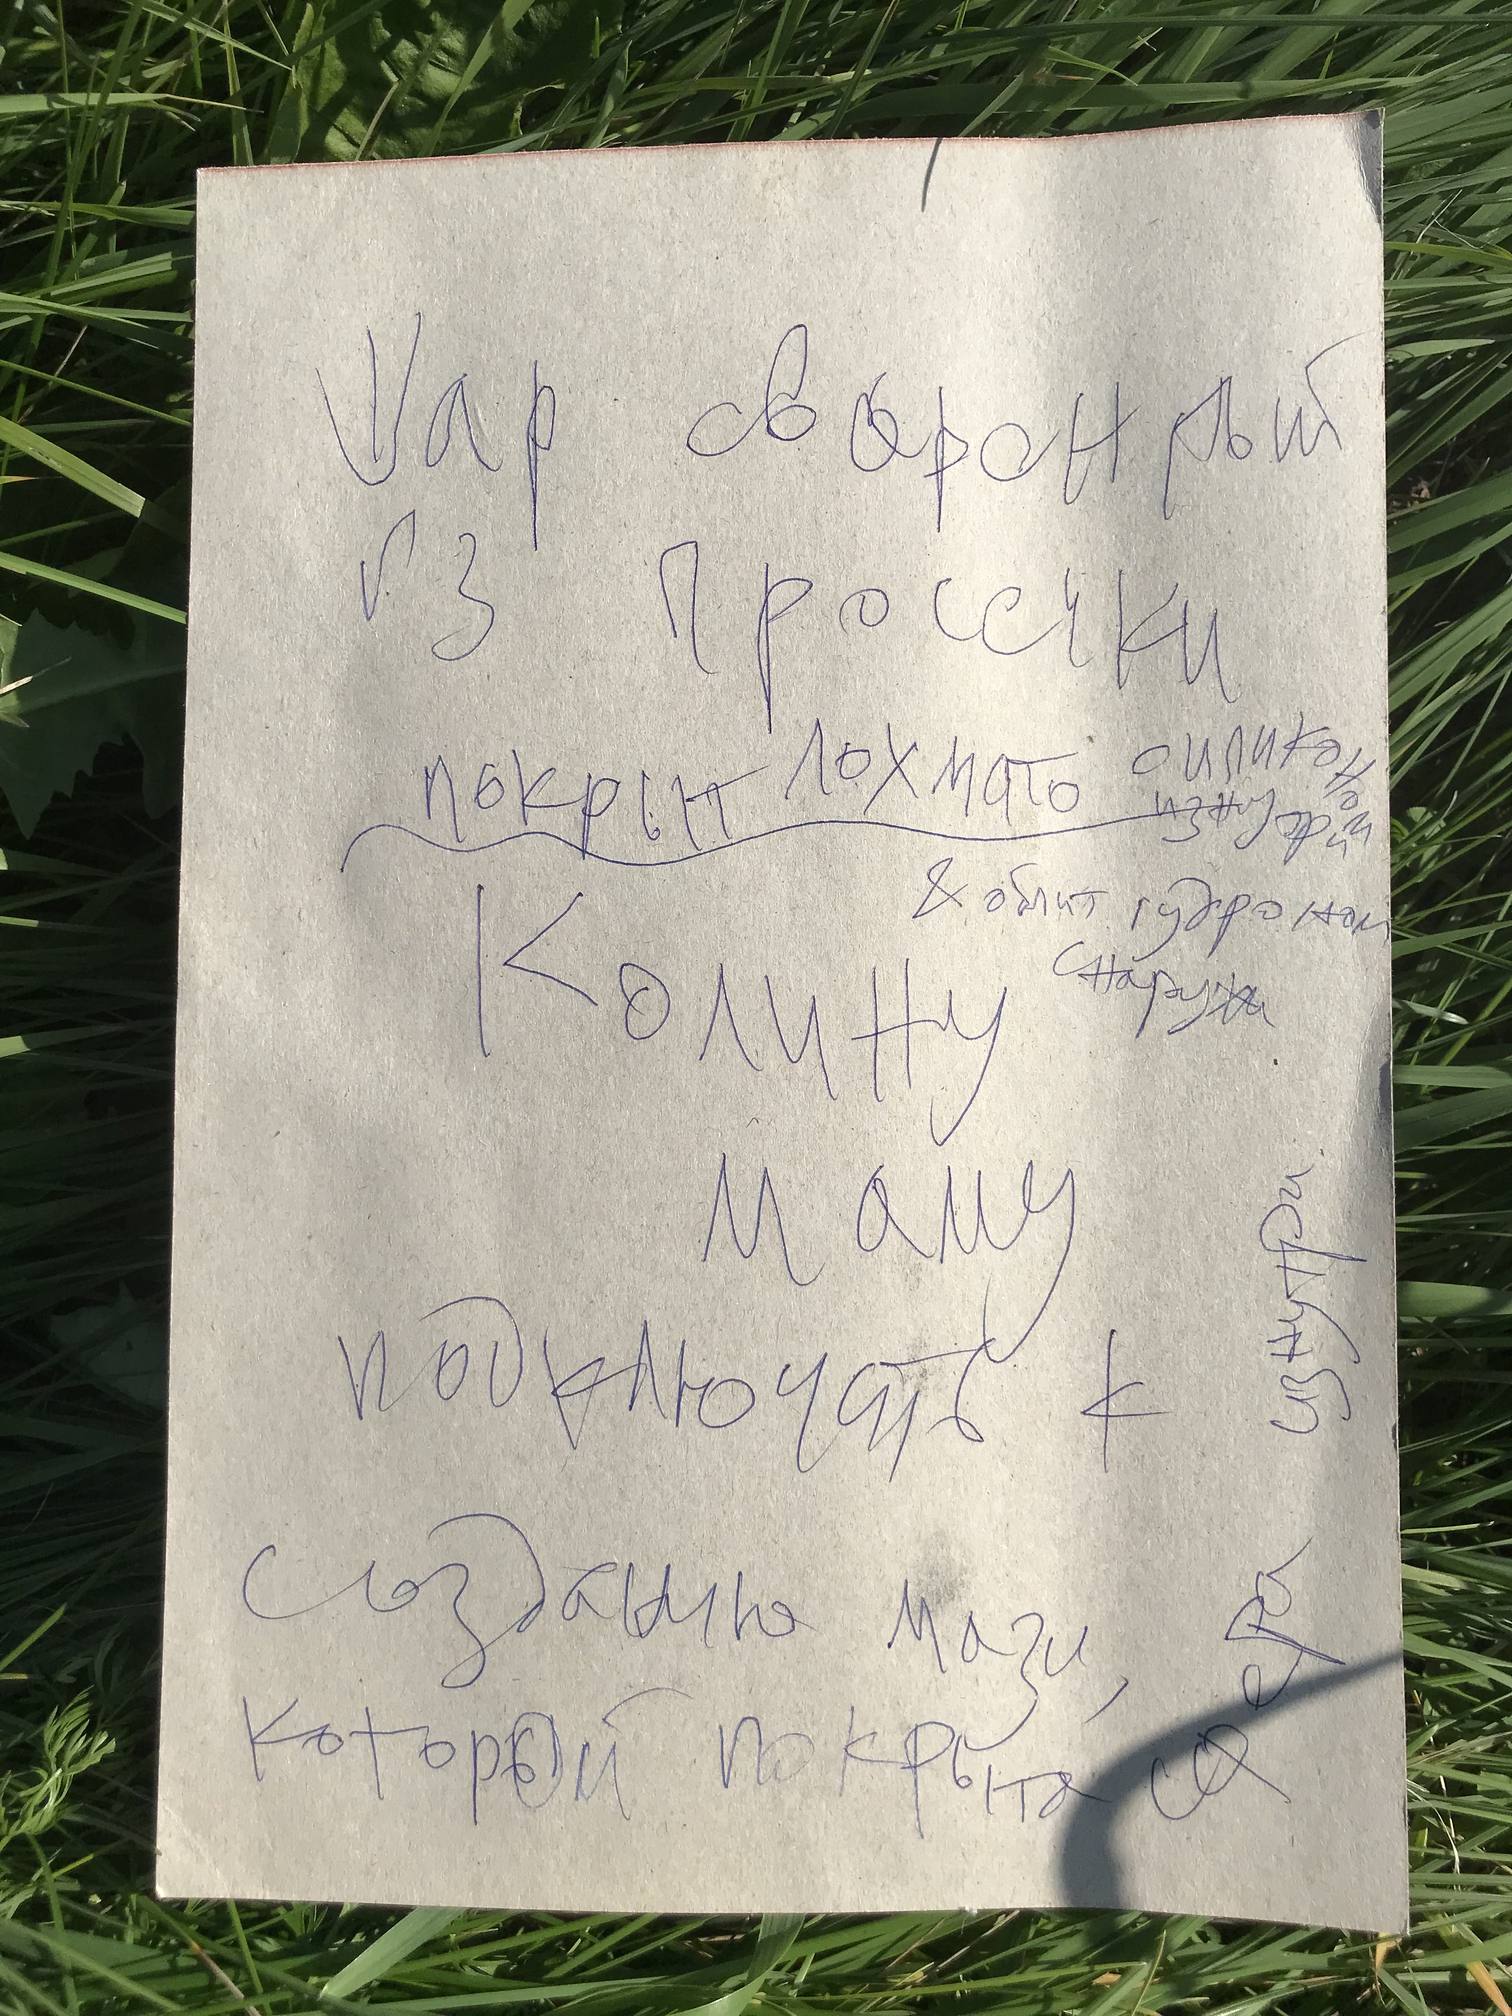 Шар сваранный
из просечки
покрыт лохмато силиконой
изнутрй
& облит гудроном
снаружи
Колину
маму
подключать к
созданию мази,
которой покрыта сфера
изнутри